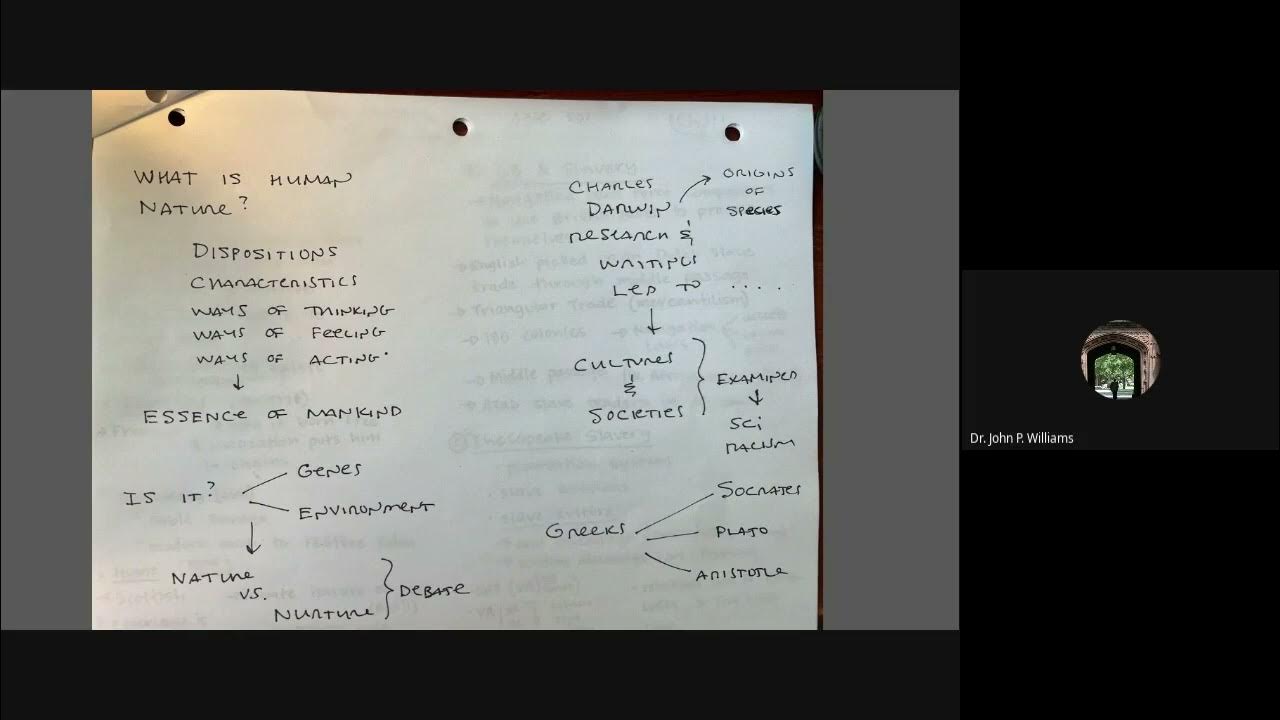 WHAT IS HUMAN
NATURE?
DISPOSITIONS
CHARACTERISTICS
WAYS OF THINKING
WAYS OF FEELING
WAYS OF ACTING
ESSENCE OF MANKIND
IS IT?
GENES
ENVIRONMENT
NATURE
VS.
NURTURE
DEBATE
CHARLES
DARWIN
RESEARCH &
WRITINGS
LED TO .....
ORIGINS
OF
SPECIES
CULTURES
&
SOCIETIES
EXAMINED
SCI
RACISM
GREEKS
SOCRATES
PLATO
ARISTOTLE
Dr. John P. Williams